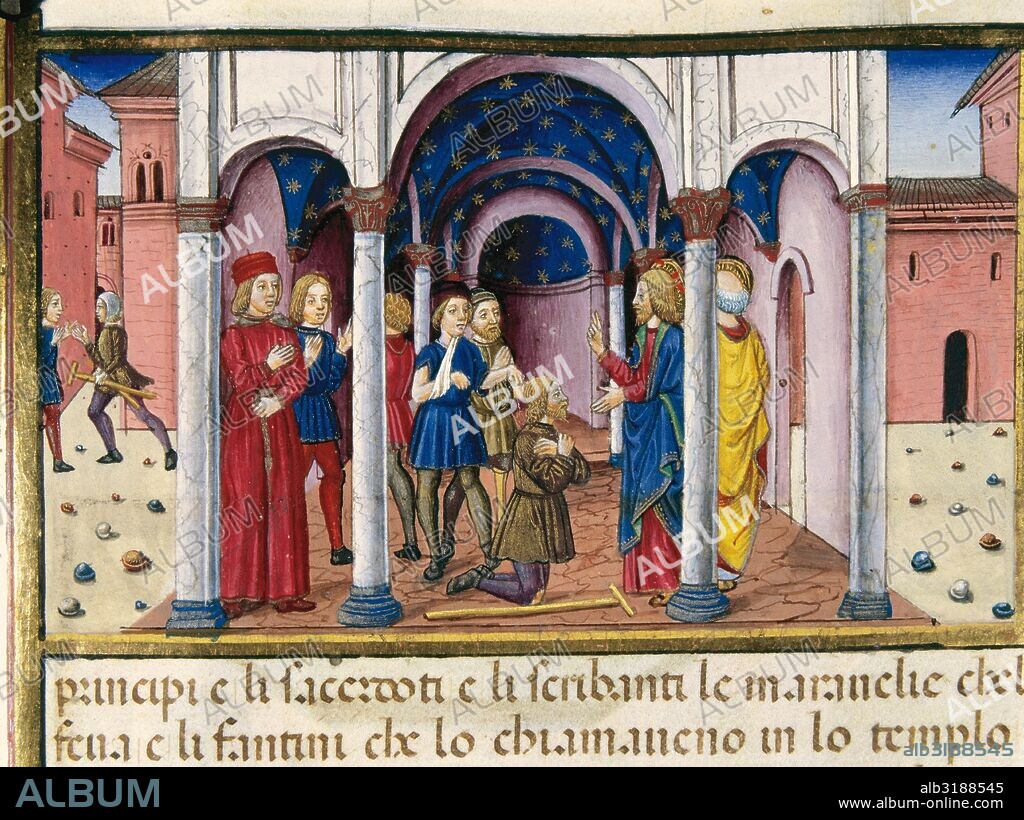 principi e li sacerdoti e li scribanti le marauelie chel
feua e li fantini che lo chiamaueno in lo templo
alb3188545
ALBUM
alb3188545
www.album-online.com